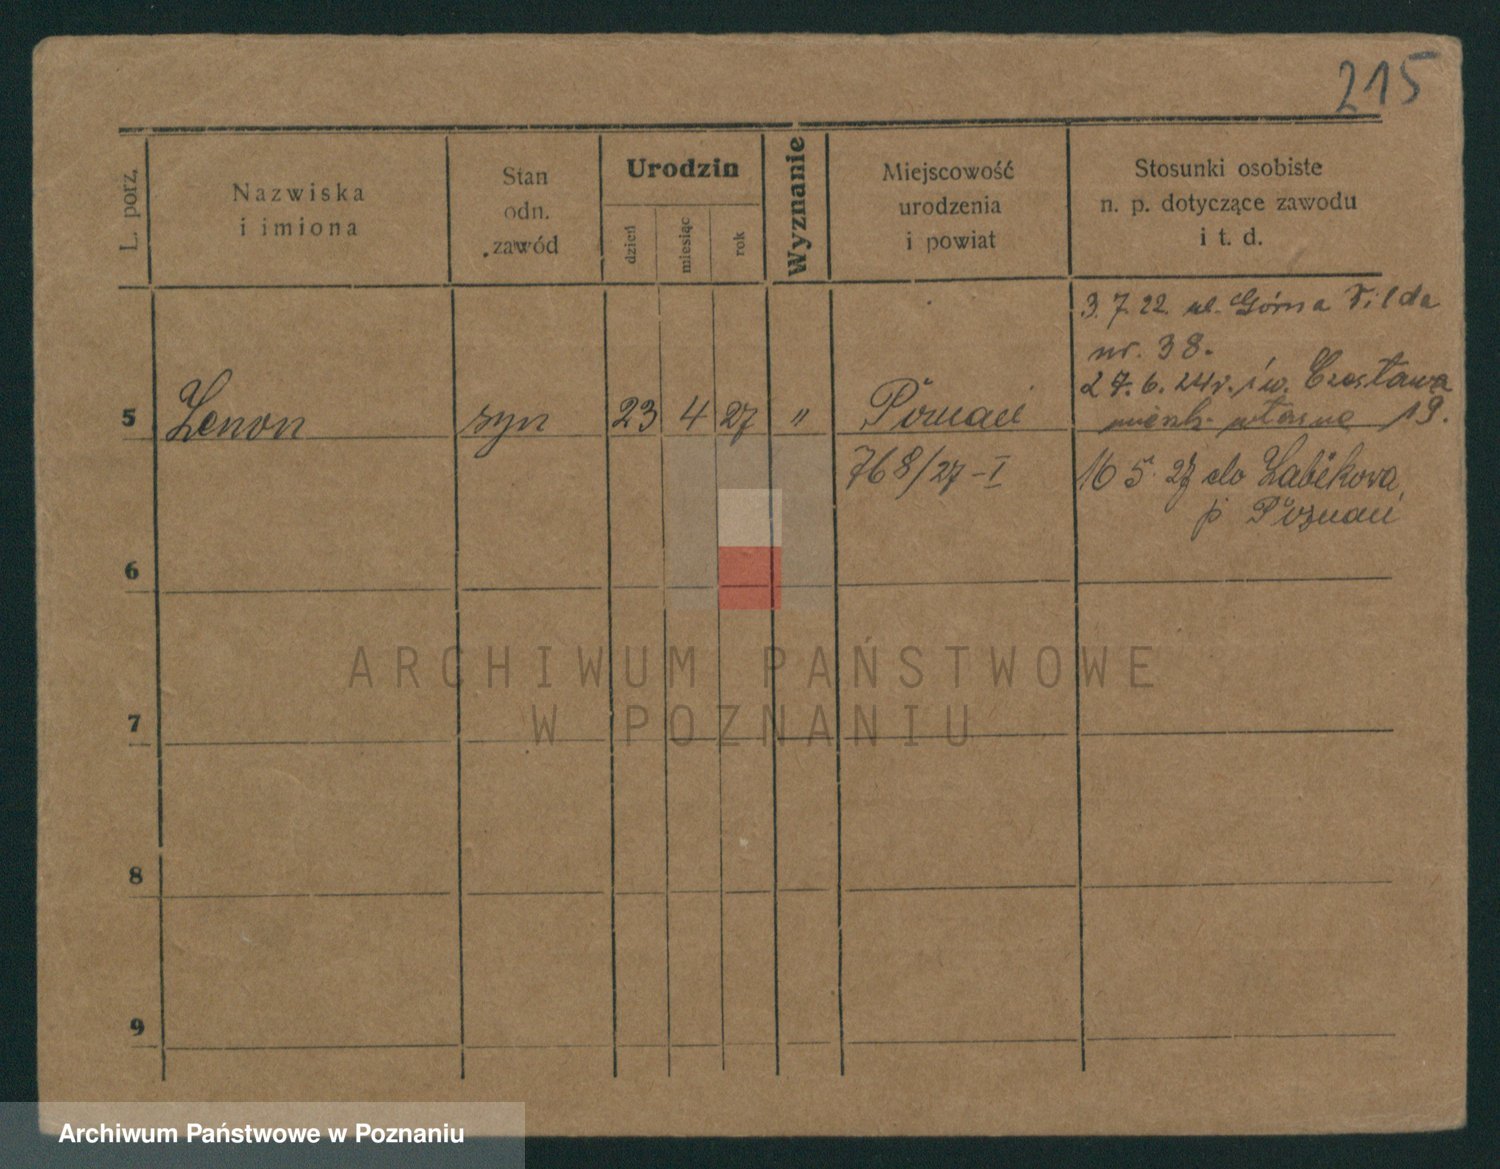 215
L. porz.
Nazwiska
i imiona
Stan
odn.
zawód
Urodzin
dzień
miesiąc
rok
Wyznanie
Miejscowość
urodzenia
i powiat
Stosunki osobiste
n. p. dotyczące zawodu
i t. d.
3.7.22. ul. Górna Vilda
nr. 38.
27.6.24r. św. Czesława
5 Zenon syn 23 4 27 " Poznań mieszk. własne 19.
768/27-I 16 5. 27 do Żabikowa
p Poznań
6
7
8
9
ARCHIWUM PAŃSTWOWE
W POZNANIU
Archiwum Państwowe w Poznaniu